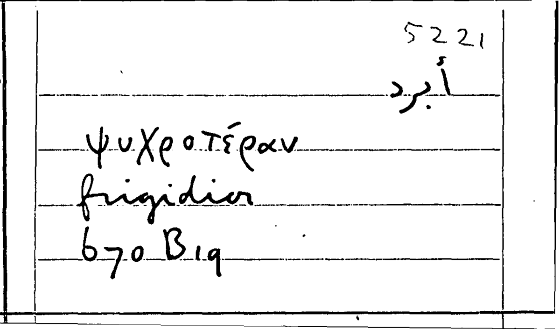 5221
أبرد
ψυχροτέραν
frigidior
670 B19